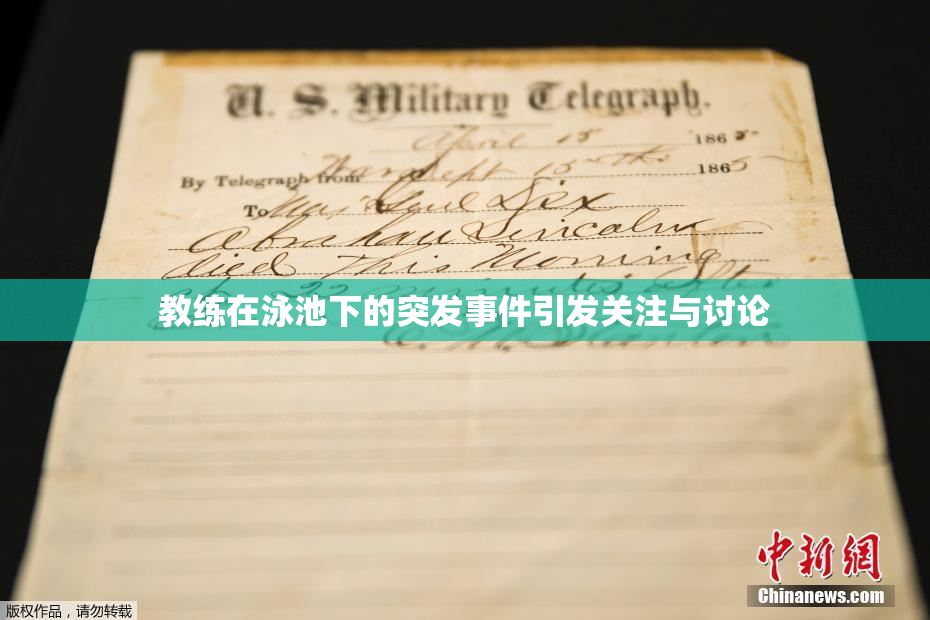 U. S. Military Telegraph.
April 15 1865
By Telegraph from War Dept 15th 1865
To Maj Genl Dix
Abraham Lincoln
died This Morning
at 22 minutes after
教练在泳池下的突发事件引发关注与讨论
中新网
Chinanews.com
版权作品,请勿转载